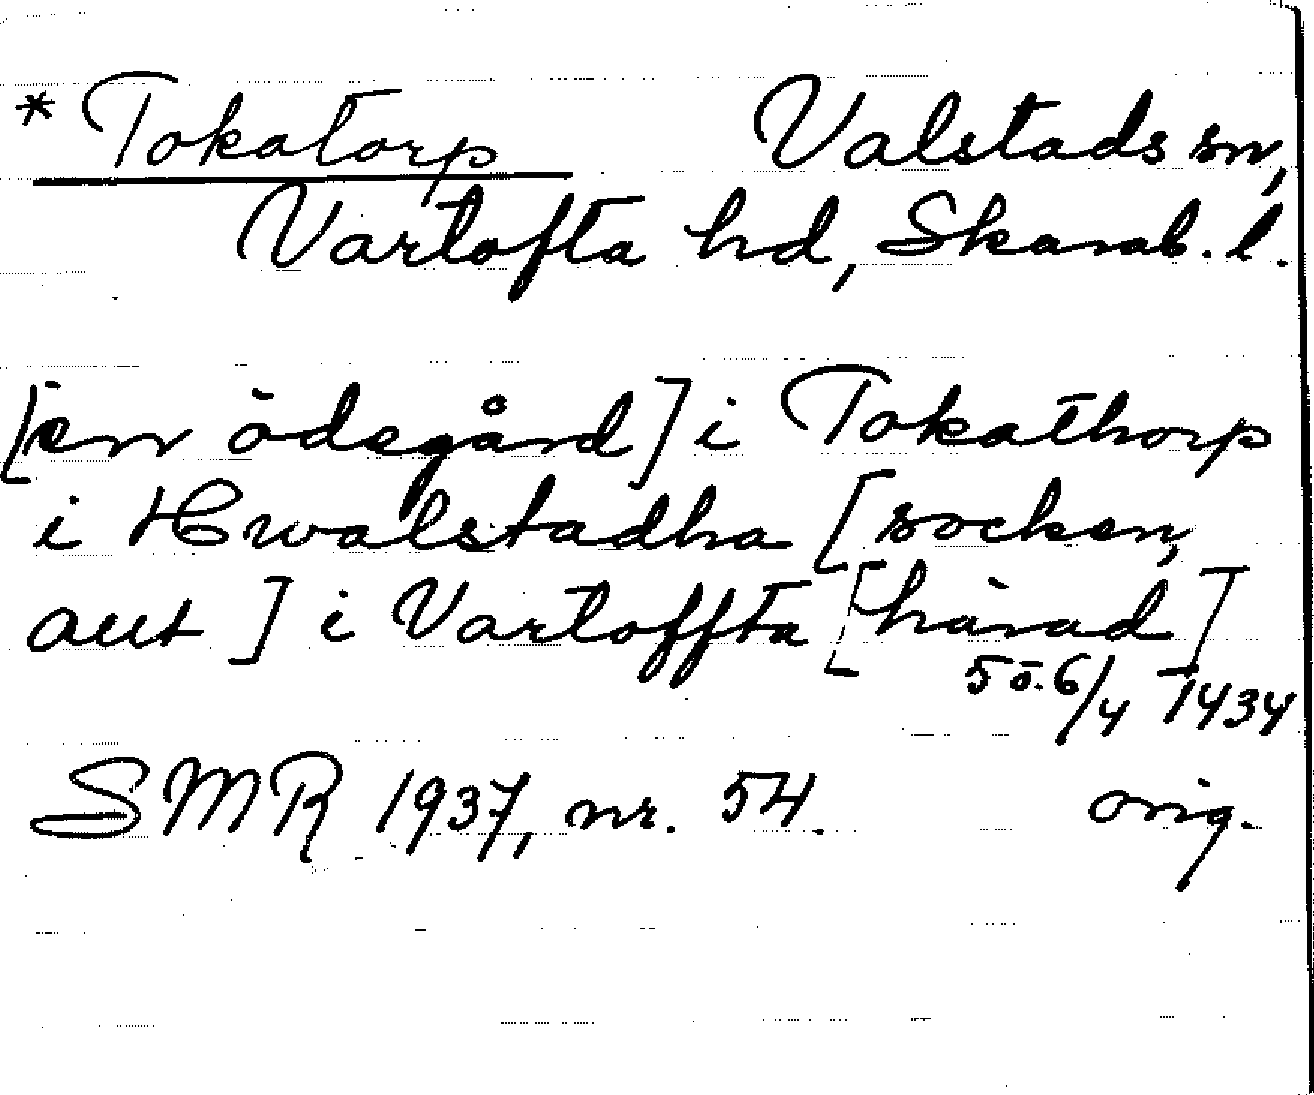 * Tokatorp Valstads sn,
Vartofta hd, Skarab. l.
[en ödegård] i Tokathorp
i Hwalstadha [socken,
aut] i Vartoffta [härad]
50.6/4 1434
SMR 1937, nr. 54. orig.